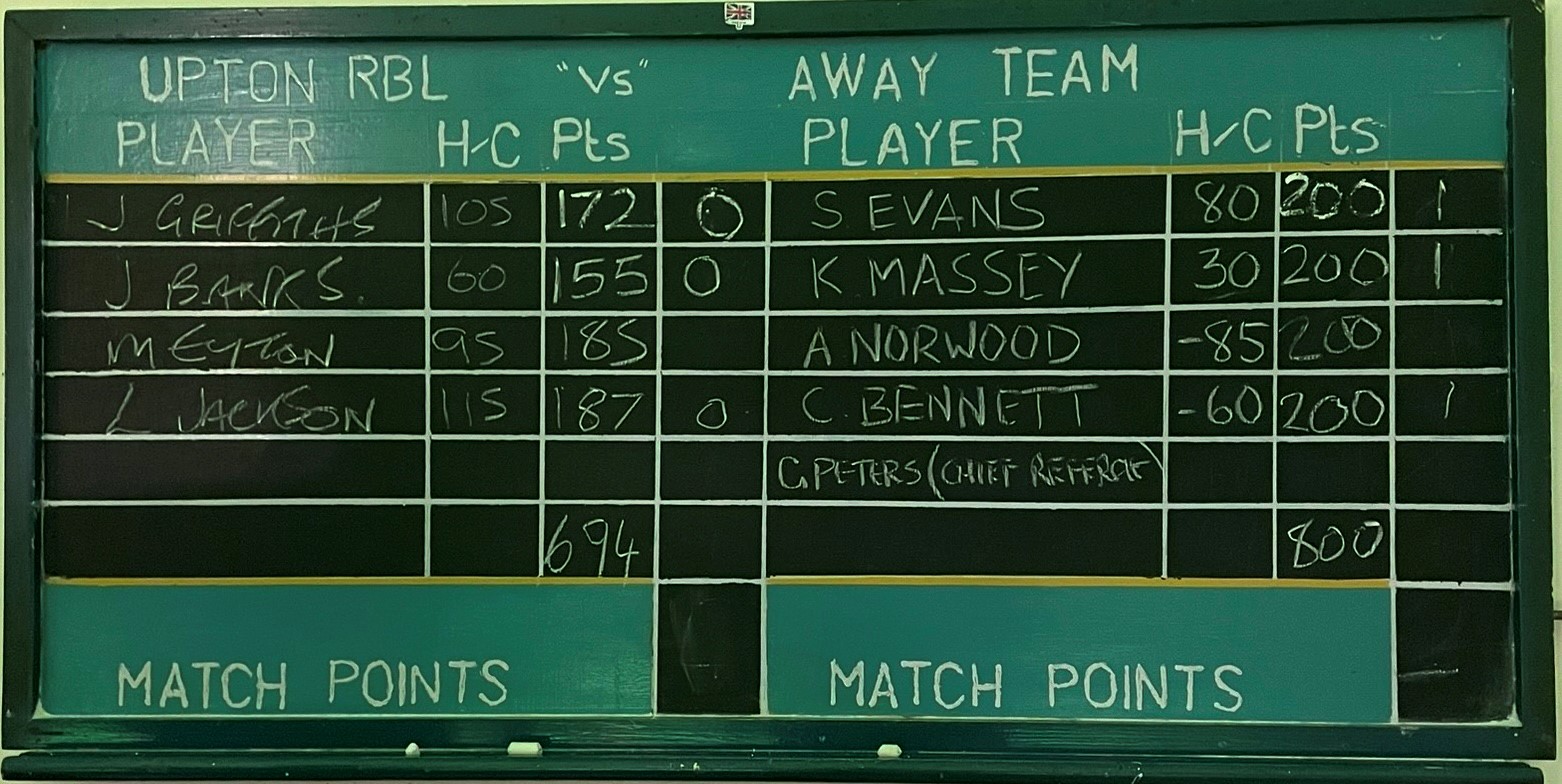 UPTON RBL "Vs" AWAY TEAM
PLAYER H/C Pts PLAYER H/C Pts
J GRIFFITHS 105 172 0 S EVANS 80 200 1
J BANKS. 60 155 0 K MASSEY 30 200 1
M EYTON 95 185 A NORWOOD -85 200
L JACKSON 115 187 0 C. BENNETT -60 200 1
G.PETERS (CHIEF
694 800
MATCH POINTS MATCH POINTS